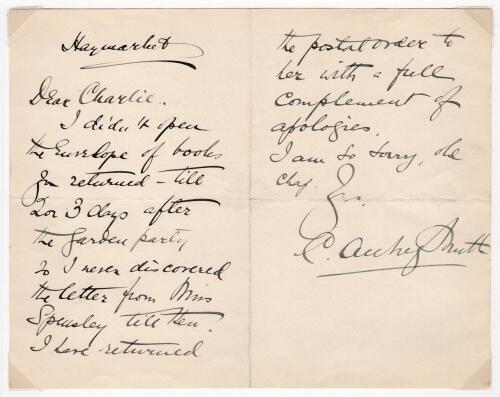 Haymarket
Dear Charlie.
I didn't open
the Envelope of books
you returned - till
2 or 3 days after
the garden party
so I never discovered
the letter from Miss
Spensley till then.
I have returned
the postal order to
her with a full
complement of
apologies.
I am so sorry, old
chap. Yrs.
C. Aubrey Smith